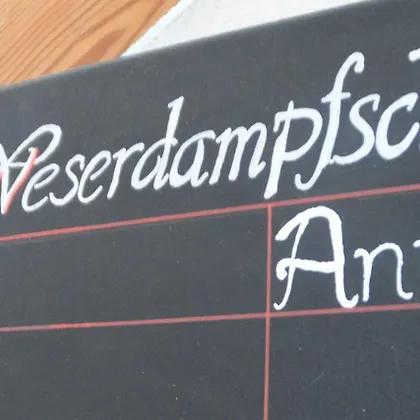 Weserdampfsc
An